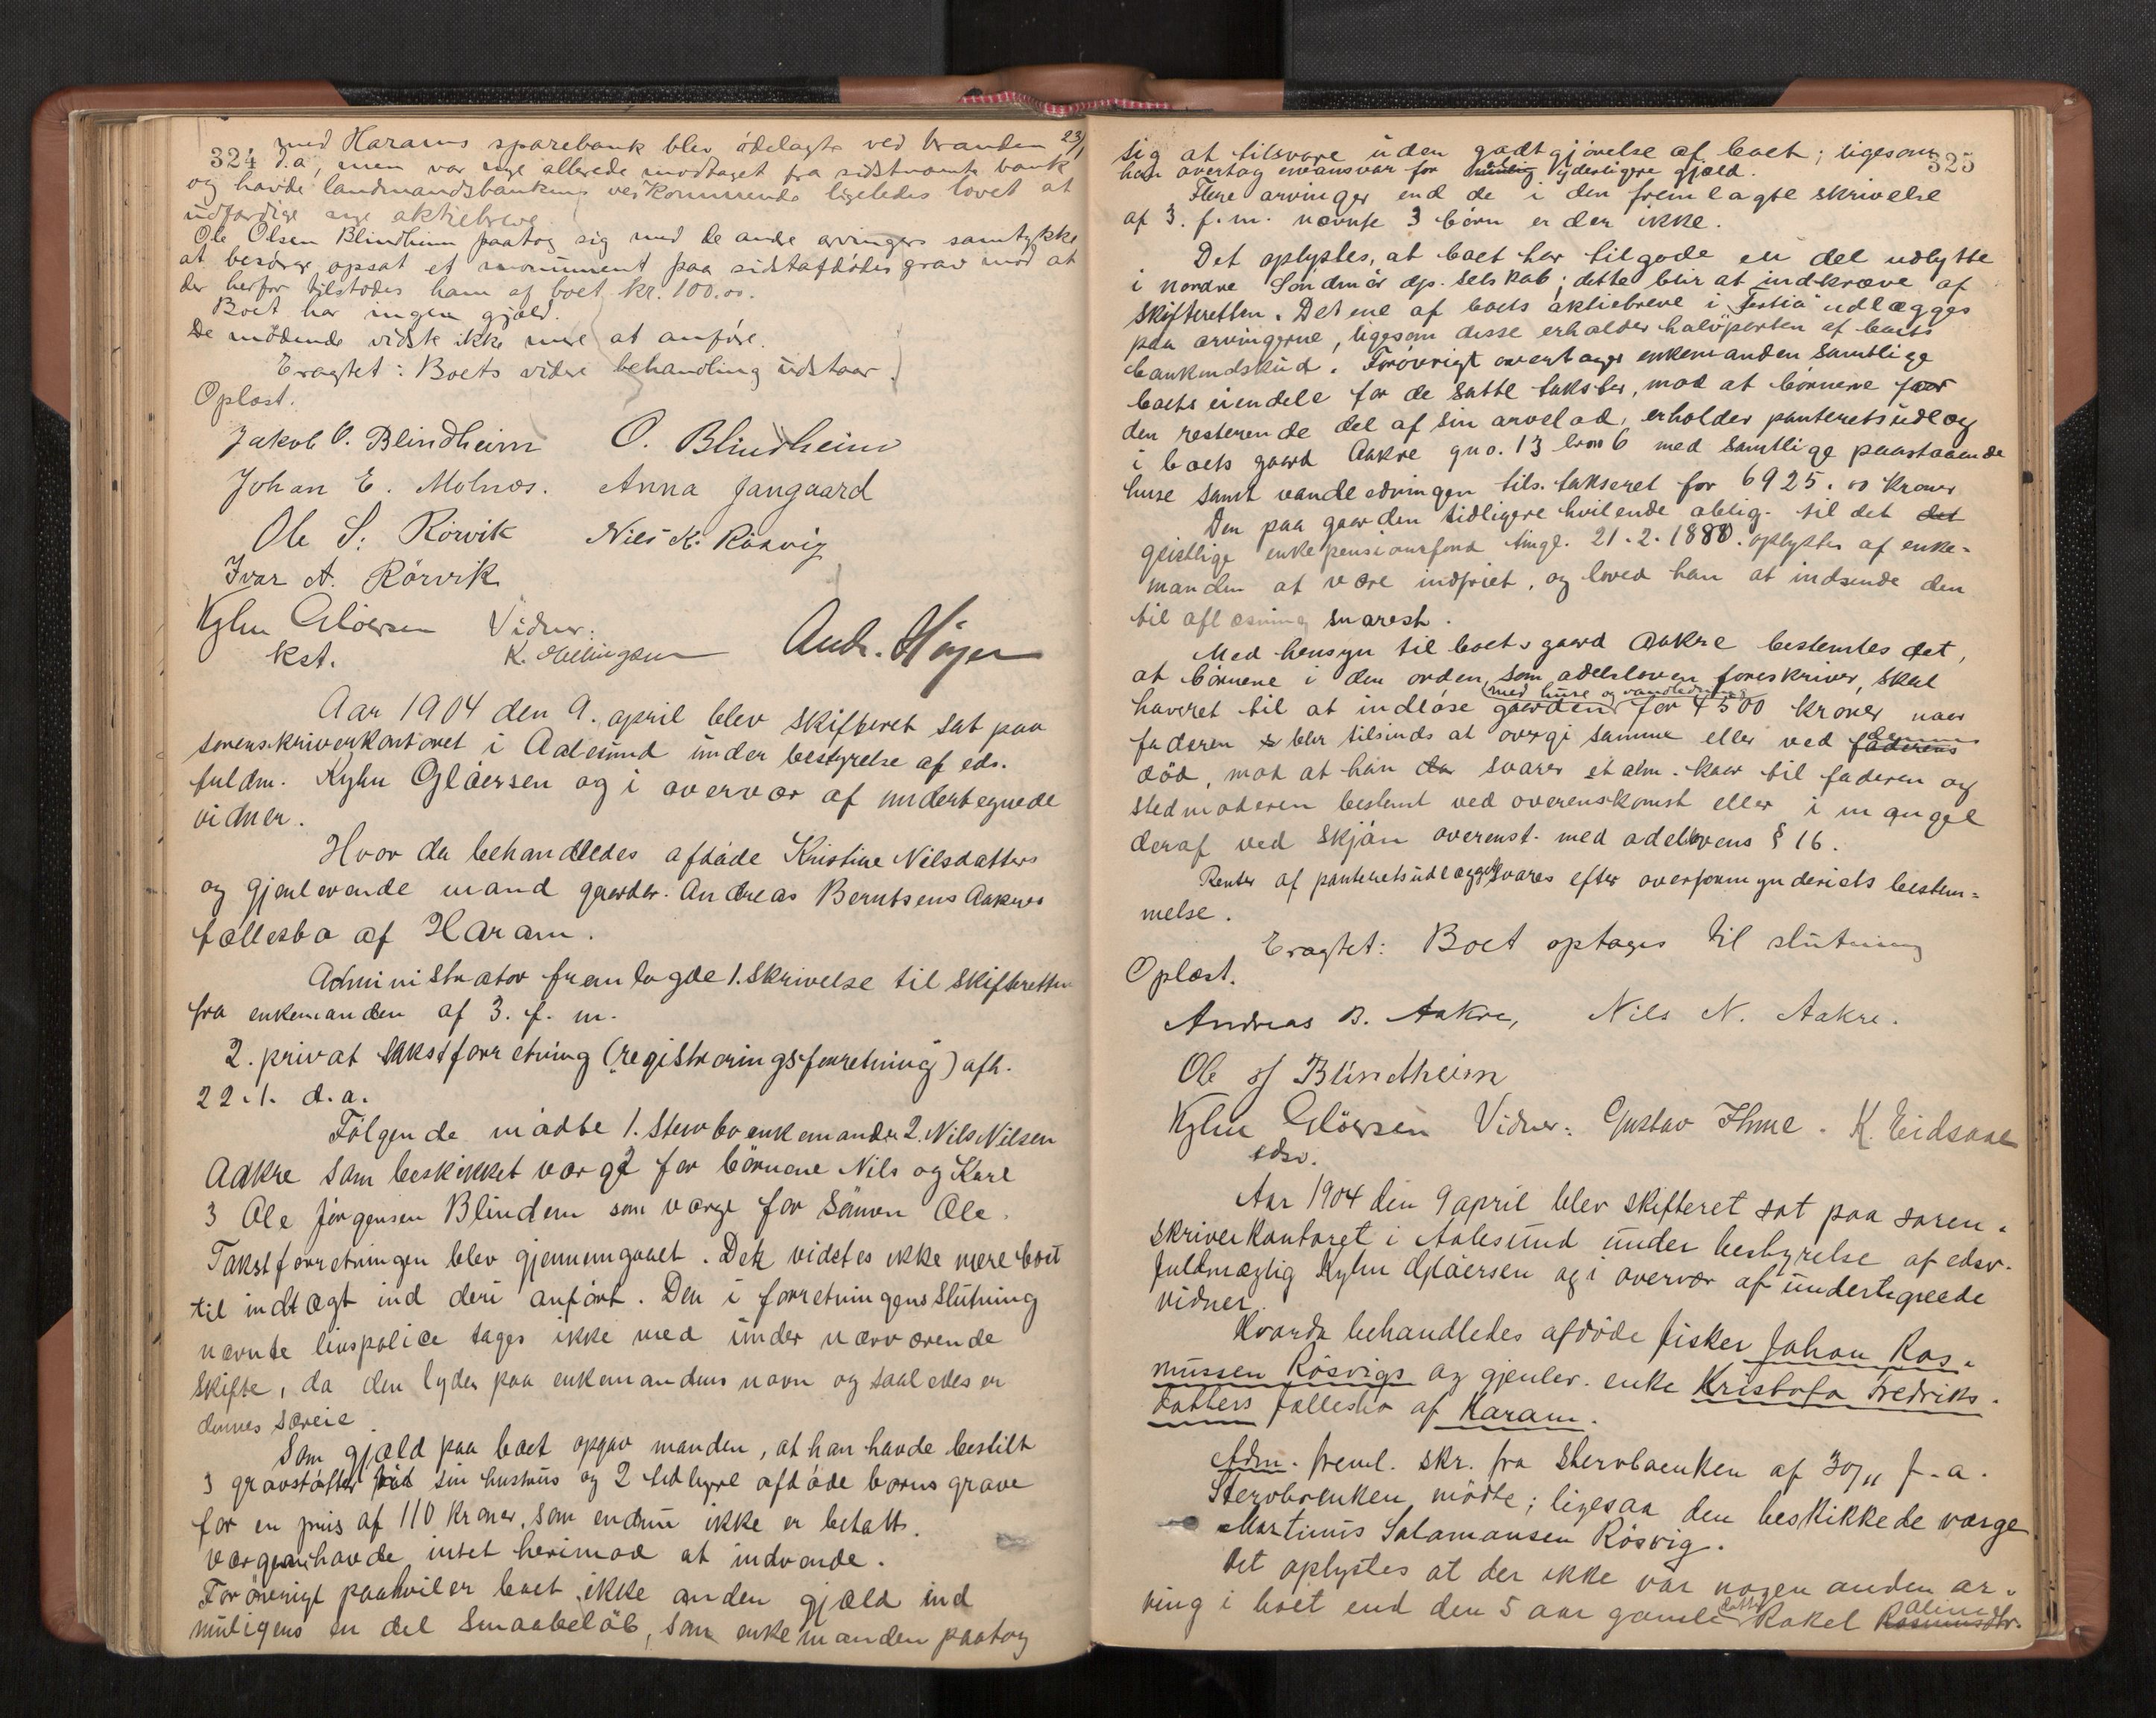 324
med Harams sparebank blev ödelagte ved branden 23/1
d.a, men var nye allerede modtaget fra sidstnævnte bank
og havde landmandsbankens vedkommende ligeledes lovet at
udfærdige nye aktiebreve.
Ole Olsen Blindheim paatog sig med de andre arvingers samtykke
at besörge opsat et monument paa sidstafdödes grav mod at
der herfor tilstodes ham af boet kr. 100.00.
Boet har ingen gjæld.
De mödende vidste ikke mere at anföre.
Eragtet: Boets videre behandling udstaar.
Oplæst.
Jakob O. Blindheim O. Blindheim
Johan E. Molnes. Anna Jangaard
Ole S. Rörvik Nils K. Rösvig
Ivar A. Rörvik
Kyhn Glöersen Vidner:
kst. K. Mellingsen Andr. Höyer
Aar 1904 den 9. april blev skifteret sat paa
sorenskriverkontoret i Aalesund under bestyrelse af eds.
fuldm. Kyhn Glöersen og i overvær af undertegnede
vidner.
Hvor da behandledes afdöde Kristine Nilsdatters
og gjenlevende mand gaardbr. Andreas Berntsens Aakres
fællesbo af Haram.
Administrator fremlagde 1. skrivelse til skifteretten
fra enkemanden af 3. f. m.
2. privat takstforretning (registreringsforretning) afh.
22.1. d.a.
Fölgende mödte 1. Stervboenkemanden 2. Nils Nilsen
Aakre som beskikket værge for börnene Nils og Karl
3 Ole Jörgensen Blindem som værge for sönnen Ole.
Takstforretningen blev gjennemgaaet. Det vidstes ikke mere boet
til indtægt ind deri anfört. Den i forretningens slutning
nævnte livspolice tages ikke med under nærværende
skifte, da den lyder paa enkemandens navn og saaledes er
dennes særeie.
Som gjæld paa boet opgav manden, at han havde bestilt
3 gravstötter paa sin hustrus og 2 tidligere afdöde börns grave
for en pris af 110 kroner, som endnu ikke er betalt.
Værgerne havde intet herimod at indvende.
Forövrigt paahviler boet ikke anden gjæld ind
muligens en del smaabelöb, som enkemanden paatog
325
sig at tilsvare uden godtgjörelse af boet; ligesom
han overtog eneansvar for mulig yderligere gjæld.
Flere arvinger end de i den fremlagte skrivelse
af 3. f. m. nævnte 3 börn er der ikke.
Det oplystes, at boet har tilgode en del udbytte
i Nordre Söndmör dp. selskab; dette blir at indkræve af
skifteretten. Det ene af boets aktiebreve i "Festia" udlægges
paa arvingerne, ligesom disse erholder halvparten af boets
bankindskud. Forövrigt overtager enkemanden samtlige
boets eiendele for de satte takster, mod at börnene for
den resterende del af sin arvelod, erholder panteretsudlæg
i boets gaard Aakre gno. 13 brno 6 med samtlige paastaaende
huse samt vandledningen tils. takseret for 6925.00 kroner
Den paa gaarden tidligere hvilende oblig. til det det
geistlige enkepensionsfond tingl. 21.2.1888. oplystes af enke-
manden at være indfriet, og loved han at indsende den
til aflæsning snarest.
Med hensyn til boets gaard Aakre bestemtes det,
at börnene i den orden, som odelsloven foreskriver, skal
haveret til at indlöse gaarden (med huse og vandledning) for 4500 kroner naar
faderen er blir tilsinds at overgi samme eller ved faderens dennes
död, mod at han da svarer et alm. kaar til faderen og
stedmoderen bestemt ved overenskomst eller i mangel
deraf ved skjön overenst. med odellovens § 16.
Renter af panteretsudlægget svares efter overformynderiets bestem-
melse.
Eragtet: Boet optages til slutning
Oplæst.
Andreas B. Aakre, Nils N. Aakre.
Ole J Blindheim
Kyhn Glöersen Vidner: Gustav Ihme. K. Eidsaae
edsv.
Aar 1904 den 9 april blev skifteret sat paa soren-
skriverkontoret i Aalesund under bestyrelse af edsv.
fuldmægtig Kyhn Glöersen og i overvær af undertegnede
vidner.
Hvorda behandledes afdöde fisker Johan Ras-
mussen Rösvigs og gjenlev. enke Kristofa Fredriks-
datters fællesbo af Haram.
Adm. freml. skr. fra stervboenken af 30/11 f.a.
Stervboenken mödte; ligesaa den beskikkede værge
Martinus Salamonsen Rösvig.
Det oplystes at der ikke var nogen anden ar-
ving i boet end den 5 aar gamle datter Rakel Rasmusdtr. Aline